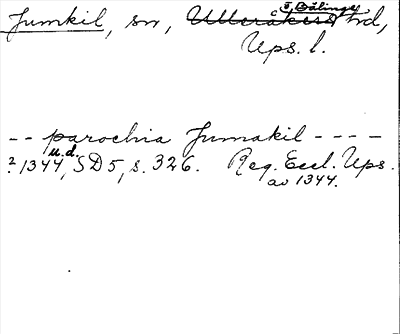 Jumkil, sn, Ulleråkers hd,
t. Bälinge
Ups. l.
-- parochia Jumakil ----
? 1344, u.d. SD 5, s. 326. Reg. Eccl. Ups.
av 1344.